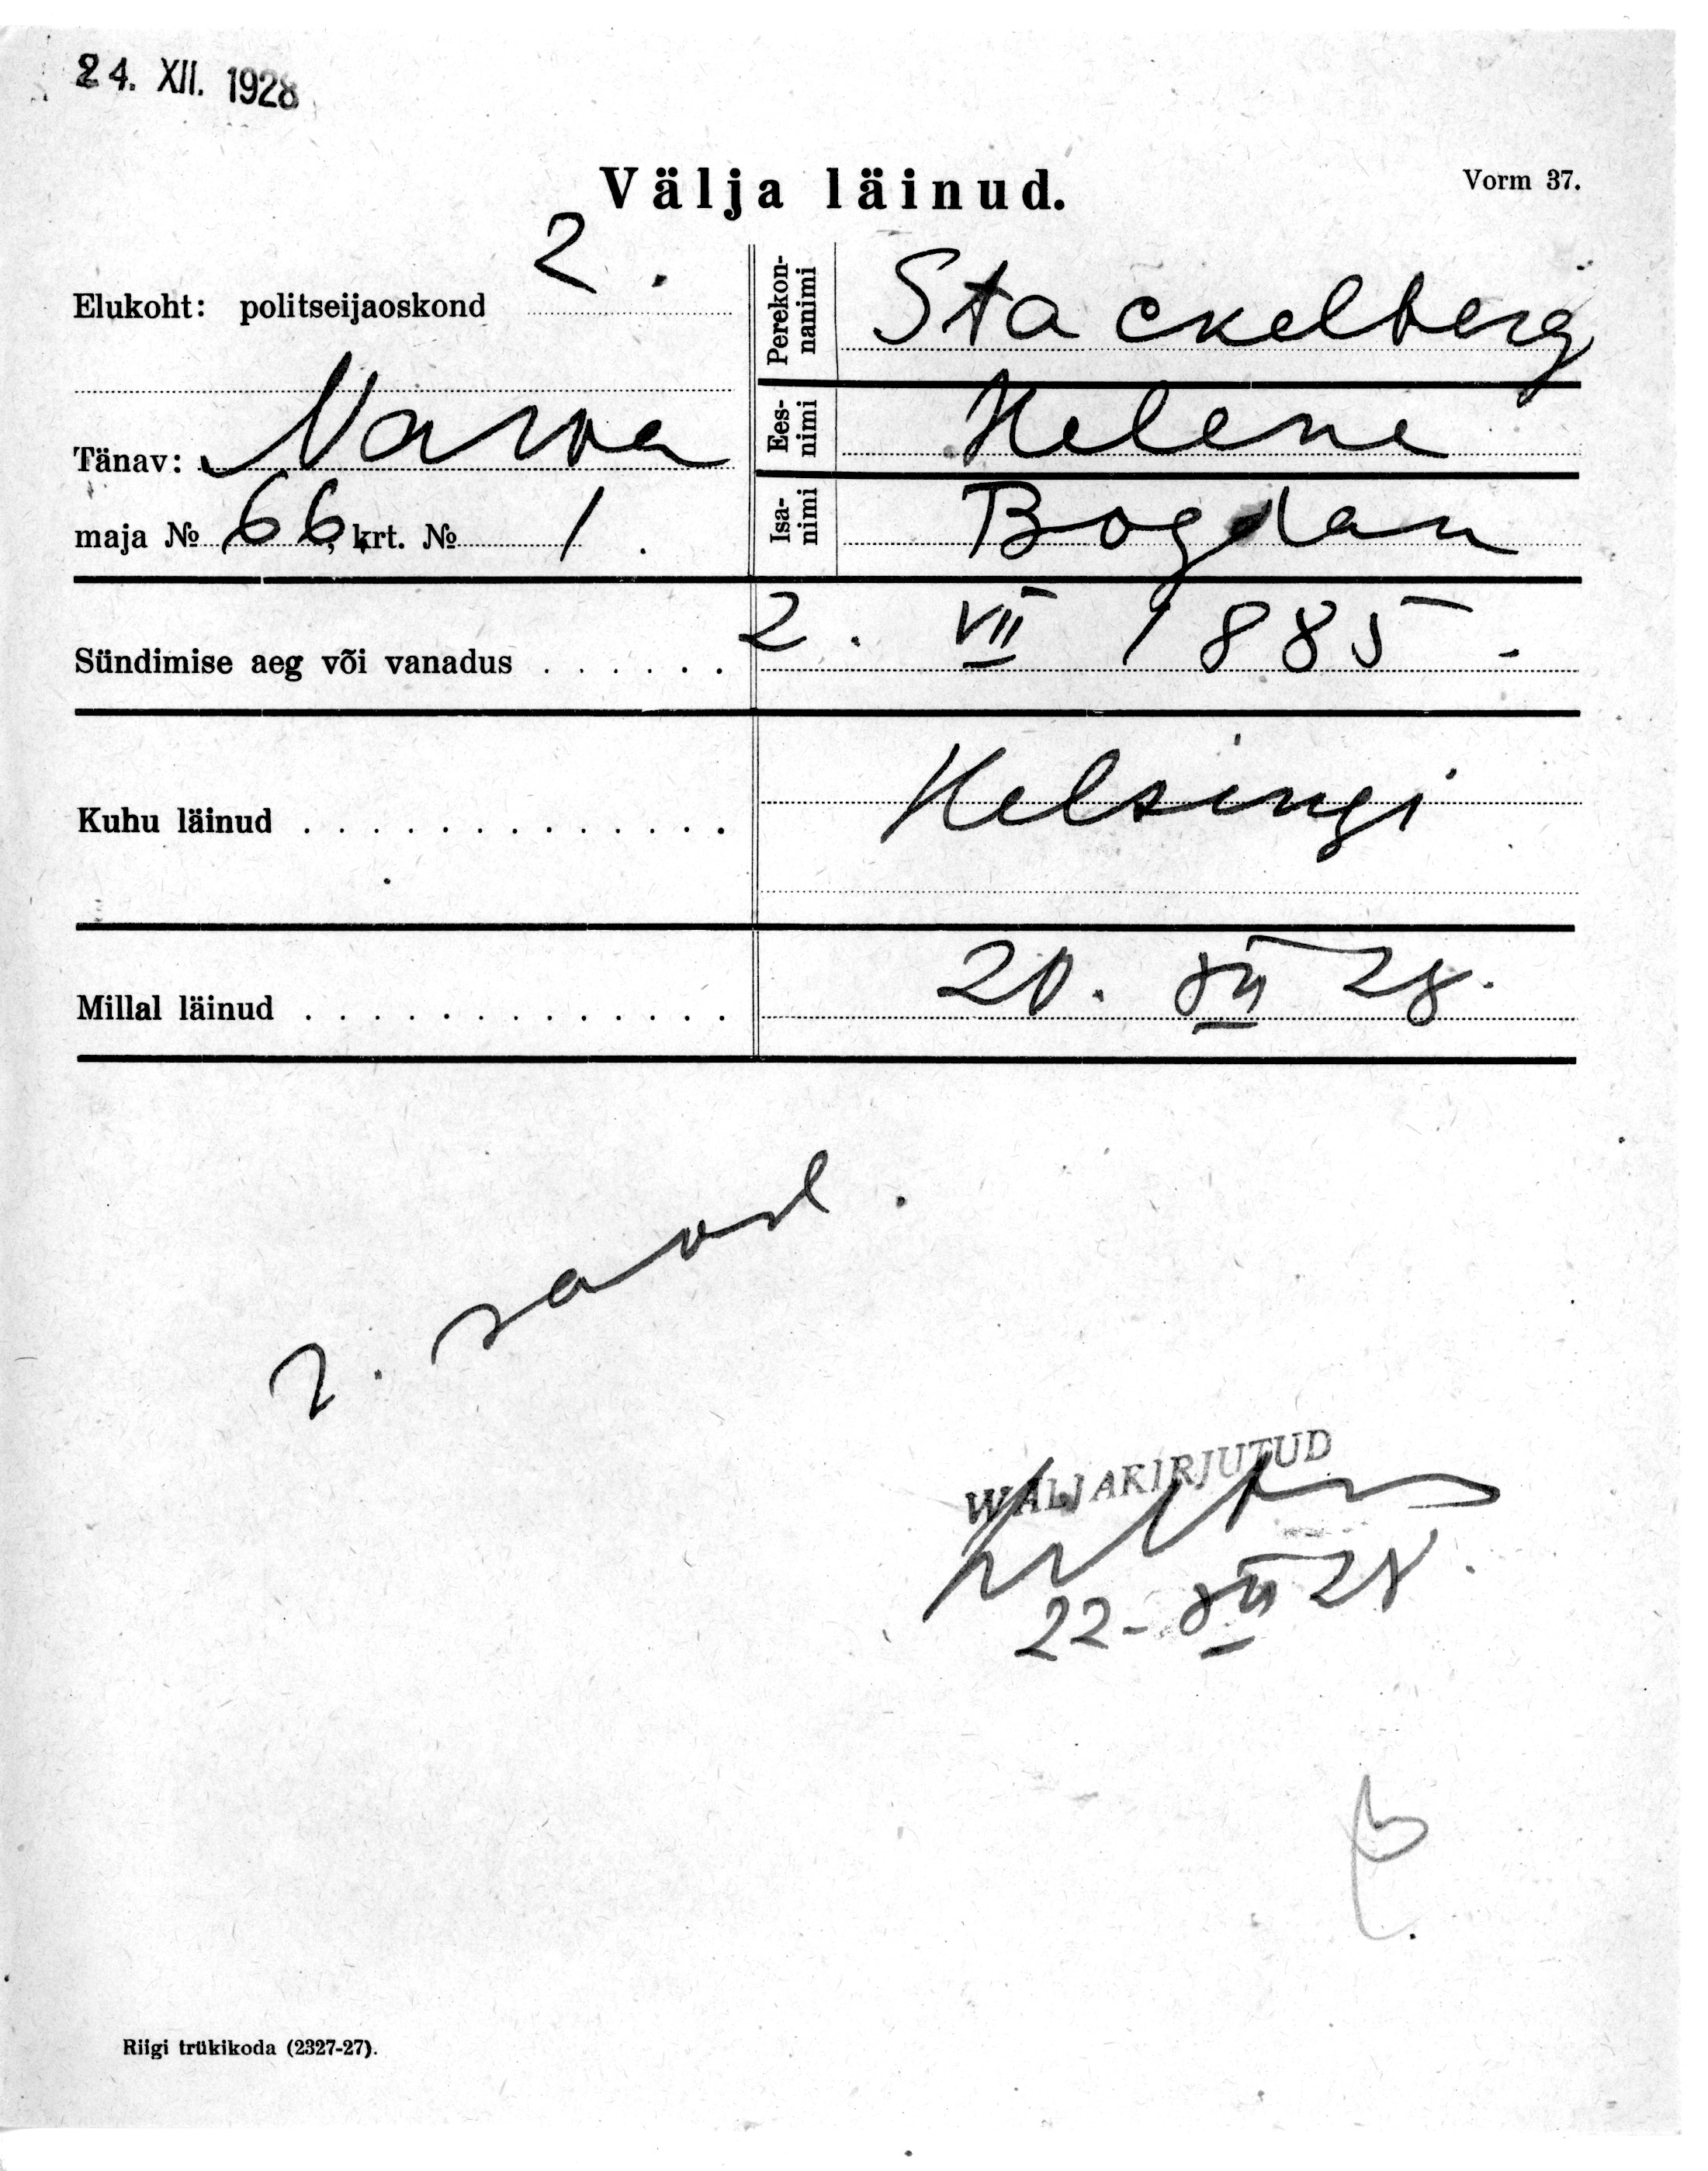 24. XII. 1928
Välja läinud.
Vorm 37.
Elukoht: politseijaoskond 2.
Tänav: Narva
maja № 66, krt. № 1.
Perekon-
nanimi Stackelberg
Ees-
nimi Helene
Isa-
nimi Bogdan
Sündimise aeg või vanadus . . . . . . 2. VII 1885 -
Kuhu läinud . . . . . . . . . . . . . Helsingi
Millal läinud . . . . . . . . . . . . . 20. XII 28.
WÄLJAKIRJUTUD
22- XII 28.
Riigi trükikoda (2327-27).